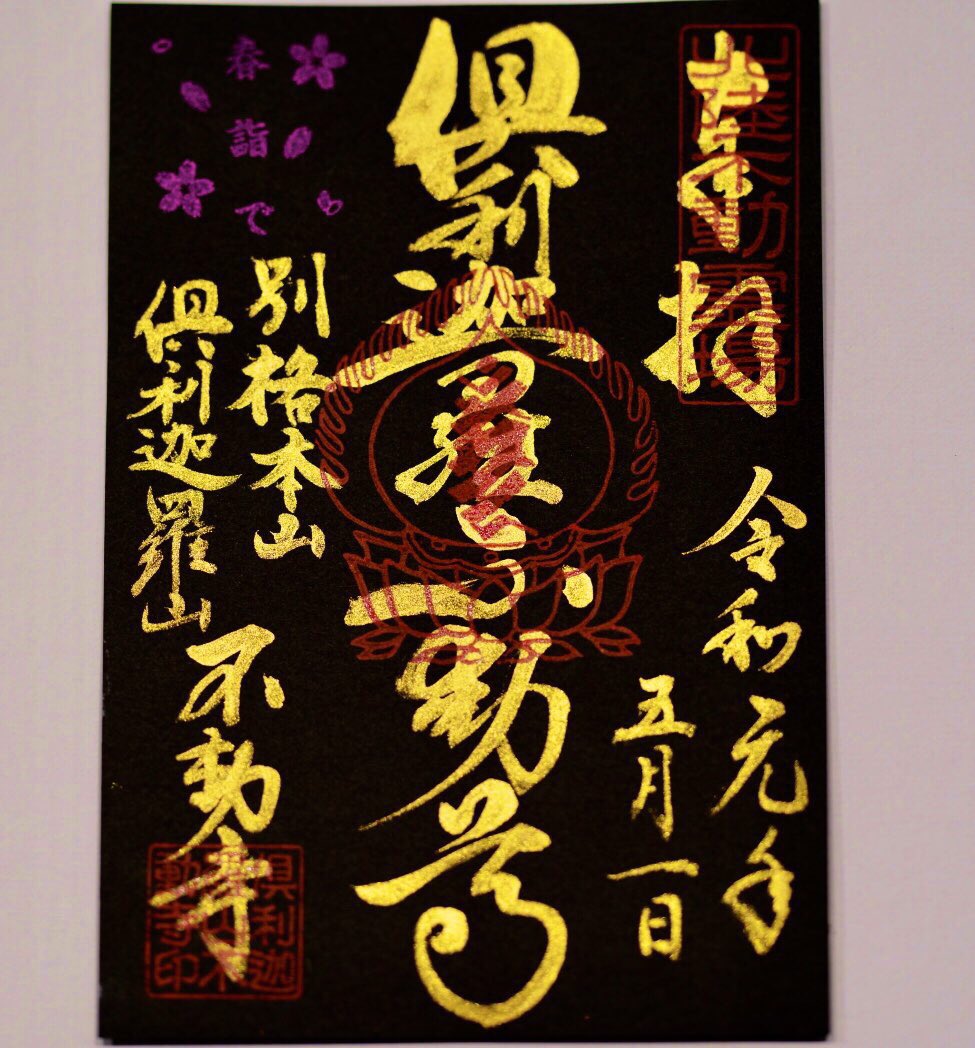 奉拝
北陸不動霊場
令和元年
五月一日
倶利迦羅不動尊
春詣で
別格本山
倶利迦羅山
不動寺
倶利迦
羅山不
動寺印